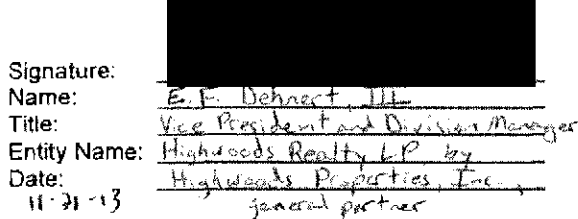 Signature:
Name: E. F. Dehnert, III
Title: Vice President and Division Manager
Entity Name: Highwoods Realty LP by
Date: Highwoods Properties, Inc.,
11-21-13 general partner